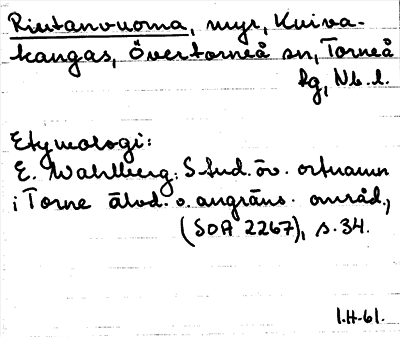 Riutanvuoma, myr, Kuiva-
kangas, Övertorneå sn, Torneå
fg, Nb. l.
Etymologi:
E. Wahlberg: Stud. öv. ortnamn
i Torne älvd. o. angräns. områd.,
(SOA 2267), s. 34.
I.H-61.